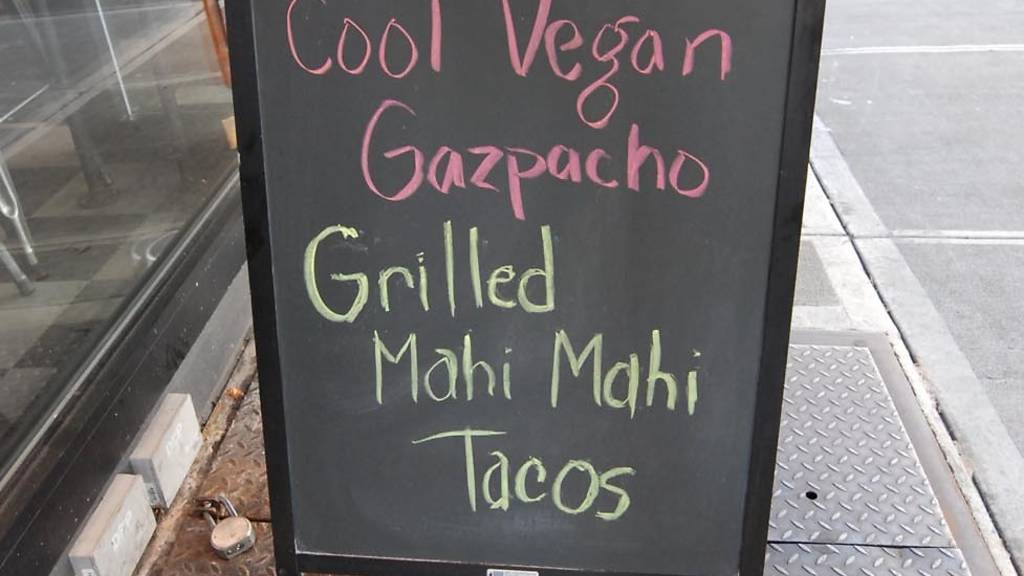 Cool Vegan
Gazpacho
Grilled
Mahi Mahi
Tacos